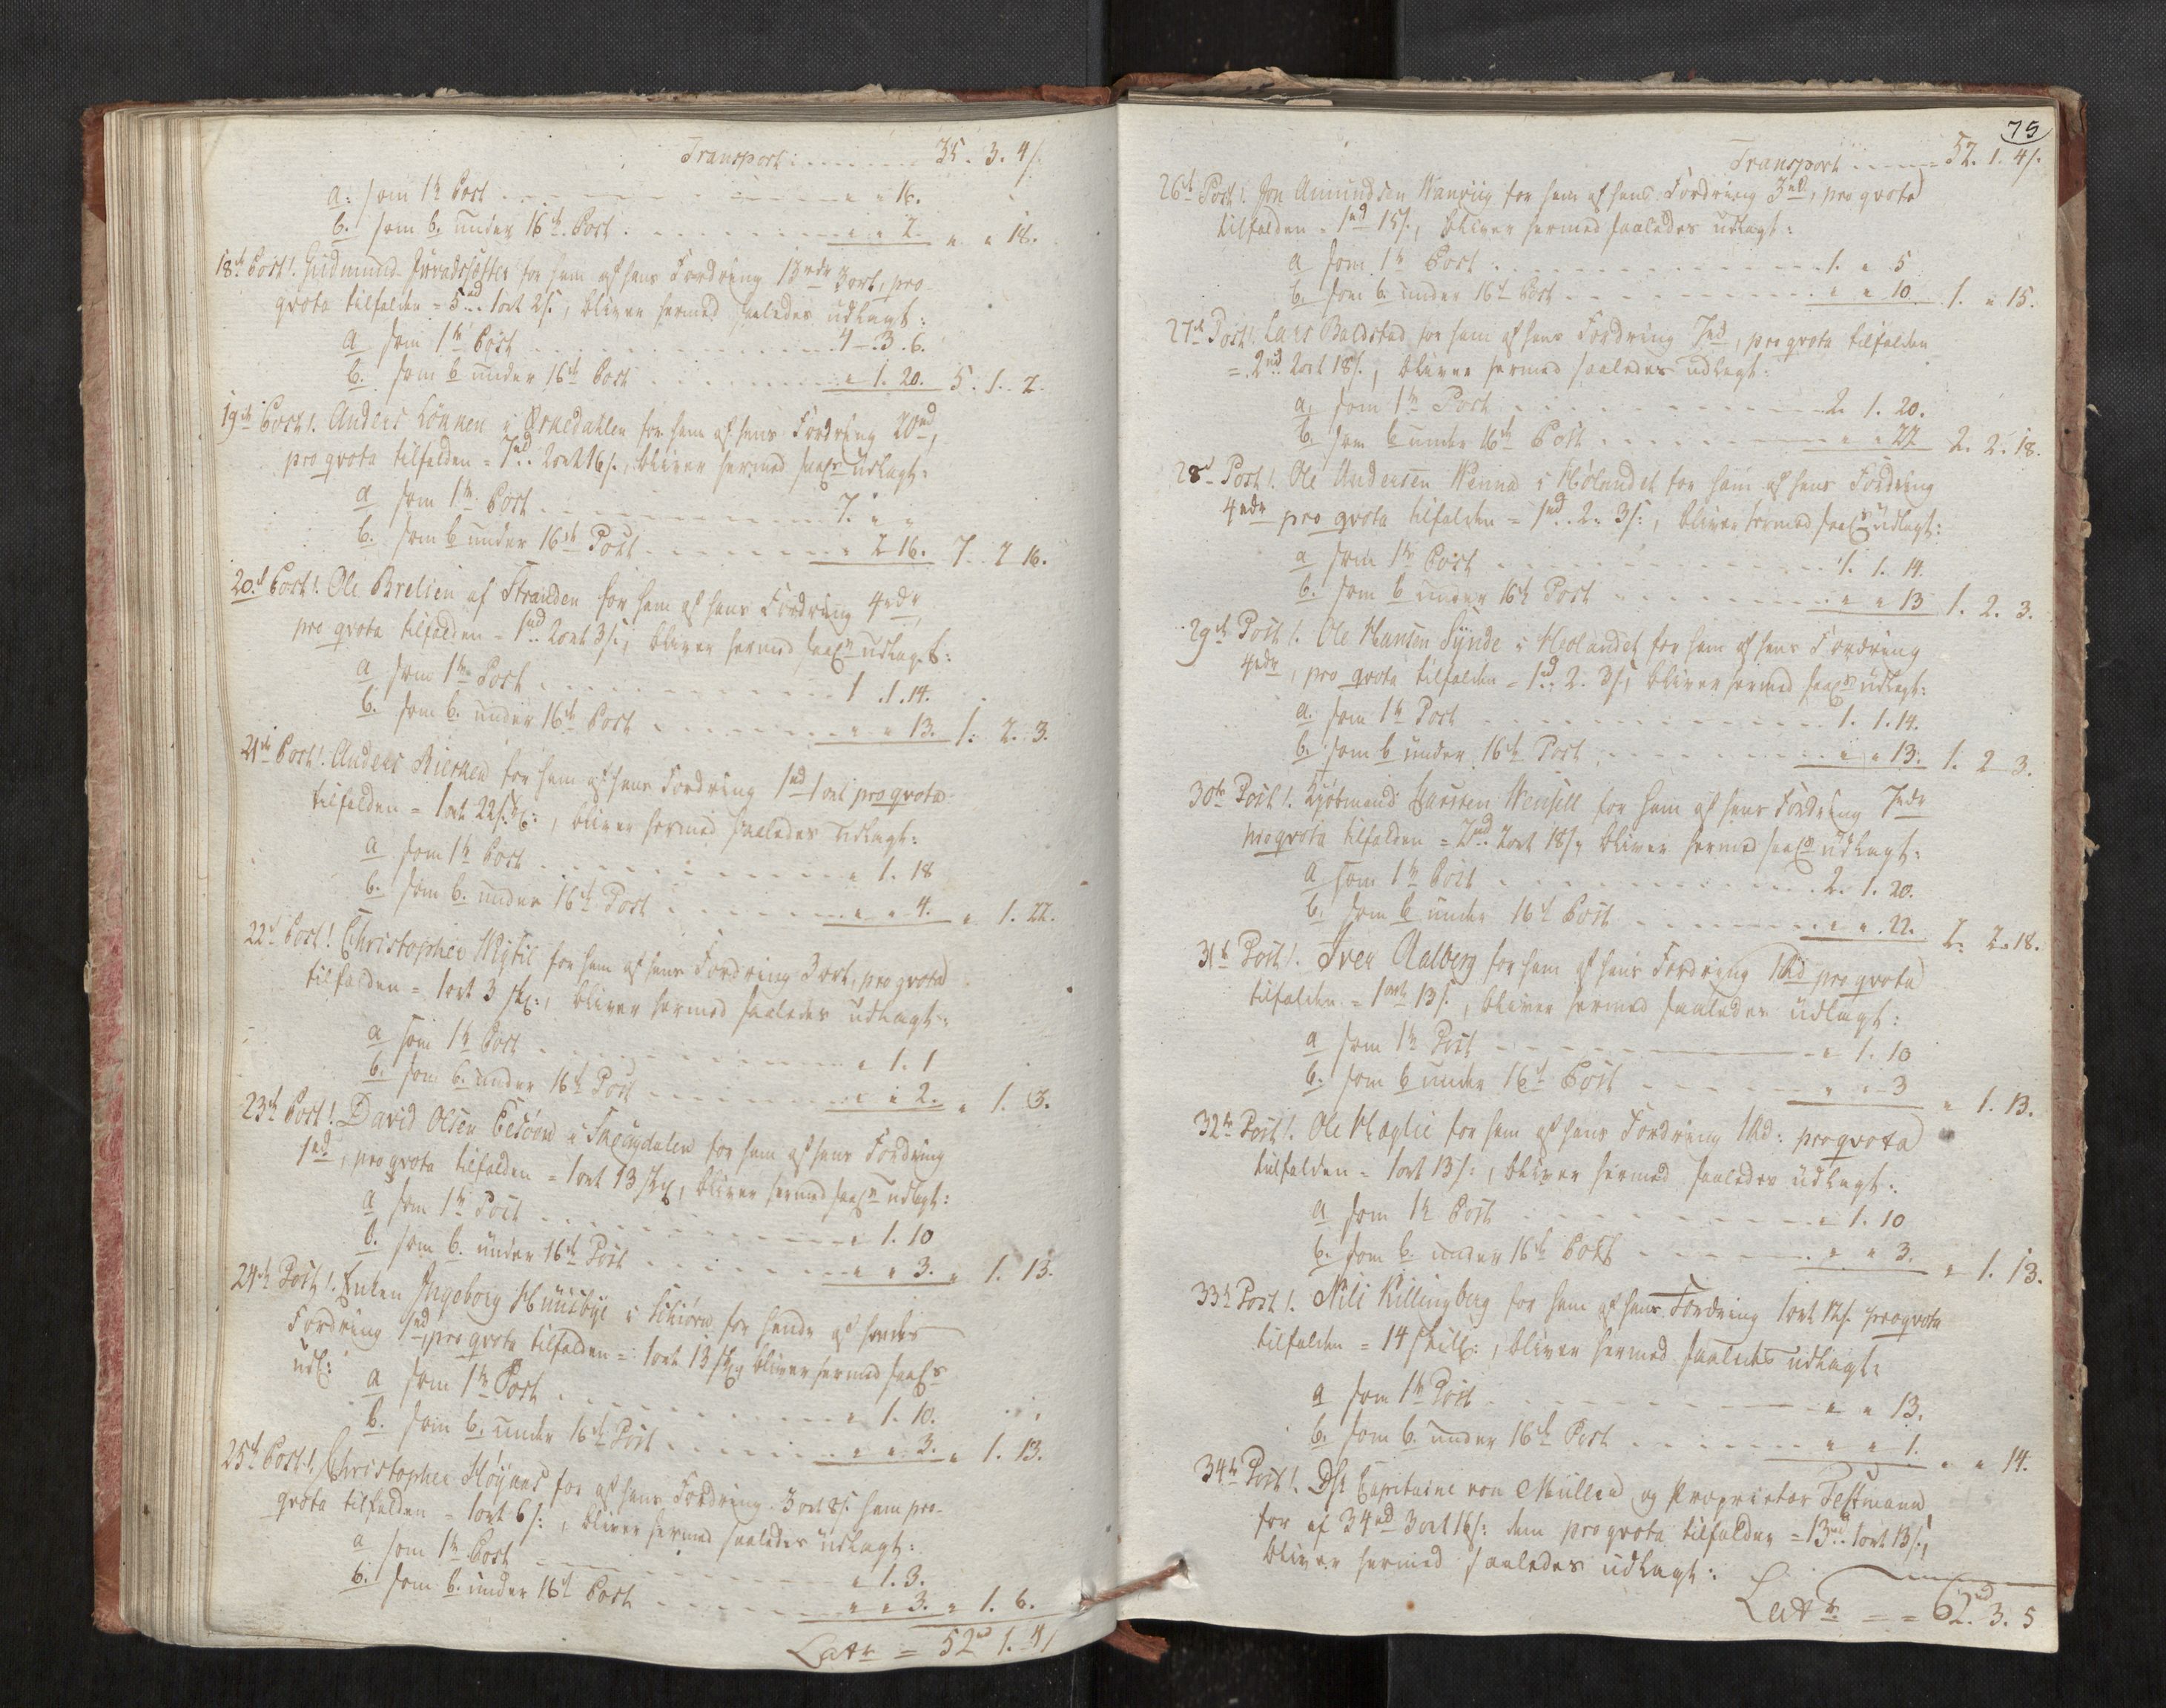 Transport: 35. 3. 4/.
a: som 1te Post " " 16.
b. som b. under 16de Post. " " 2. " " 18.
18de Post!. Gudmund for ham af hans Fordring 13rdr 3 ort, pro
qvota tilfalden = 5rd. 1 ort 2/:, bliver hermed saaledes udlagt:
a som 1te Post 4 - 3. 6.
b. som b under 16de Post " 1. 20. 5. 1. 2.
19de Post!. Anders Lønnen i Orkedahlen for ham af hans Fordring 20rd,
pro qvota tilfalden = 7rd. 2 ort 16/:, bliver hermed saal: udlagt:
a som 1te Post 7. " "
b. som b under 16de Post " 2 16. 7. 2 16.
20de Post!. Ole Brelien af Stranden for ham af hans Fordring 4rdr
pro qvota tilfalden = 1rd. 2 ort 3/:, bliver hermed saal: udlagt:
a som 1te Post 1. 1. 14.
b. som b. under 16de Post " " 13. 1: 2. 3.
21de Post!. Anders Bierken for ham af hans Fordring 1rd 1 ort pro qvota
tilfalden = 1 ort 22/:, bliver hermed saaledes udlagt:
a som 1te Post " 1. 18
b. som b. under 16de Post " " 4. " 1. 22.
22de Post!. Christopher for ham af hans Fordring 3 ort, pro qvota
tilfalden = 1 ort 3 sk:, bliver hermed saaledes udlagt:
a som 1te Post " 1. 1
b. som b. under 16de Post " " 2. " 1. 3.
23de Post!. David Olsen i for ham af hans Fordring
1rd, pro qvota tilfalden = 1 ort 13 sk:, bliver hermed saal: udlagt:
a som 1te Post " 1. 10
b. som b. under 16de Post " " 3. " 1. 13.
24de Post!. Enken Ingeborg Huusbye i for hende af hendes
Fordring 1rd, pro qvota tilfalden = 1 ort 13 sk:, bliver hermed saal:
udl:
a som 1te Post " 1. 10.
b. som b. under 16de Post " " 3. " 1. 13.
25de Post!. Christopher Høynes for af hans Fordring 3 ort 8/: ham pro
qvota tilfalden = 1 ort 6/:, bliver hermed saaledes udlagt:
a som 1te Post " 1. 3.
b. som b. under 16de Post " " 3. " 1. 6.
Latr = 52rd 1. 4/
75
Transport 52. 1. 4/.
26de Post!. Jon Amundsen Wanvig for ham af hans Fordring 3rd, pro qvota
tilfalden = 1rd 15/:, bliver hermed saaledes udlagt:
a som 1te Post 1. " 5
b. som b. under 16de Post " " 10 1. " 15.
27de Post!. Lars Baldstad for ham af hans Fordring 7rd, pro qvota tilfalden
= 2rd. 2 ort 18/:, bliver hermed saaledes udlagt:
a. som 1te Post 2. 1. 20.
b. som b under 16de Post " " 22 2. 2. 18.
28de Post!. Ole Andersen Wenna i Hølandet for ham af hans Fordring
4rdr pro qvota tilfalden = 1rd. 2. 3/:, bliver hermed saal: udlagt:
a som 1te Post 1. 1. 14.
b. som b under 16de Post " " 13 1. 2. 3.
29de Post!. Ole Hansen Synde i Hølandet for ham af hans Fordring
4rdr, pro qvota tilfalden = 1rd. 2. 3/:, bliver hermed saal: udlagt:
a. som 1te Post 1. 1. 14.
b. som b under 16de Post " " 13. 1. 2 3.
30te Post!. Kjøbmand Carsten Wensell for ham af hans Fordring 7rdr
pro qvota tilfalden = 2rd. 2 ort 18/: bliver hermed saal: udlagt:
a som 1te Post 2. 1. 20.
b. som b under 16de Post " " 22. 2. 2. 18.
31te Post!. Iver Aalberg for ham af hans Fordring 1Rd pro qvota
tilfalden = 1 ort 13/:, bliver hermed saaledes udlagt:
a som 1te Post " 1. 10
b. som b under 16de Post " " 3 " 1. 13.
32te Post!. Ole Haglie for ham af hans Fordring 1Rd: pro qvota
tilfalden = 1 ort 13/:, bliver hermed saaledes udlagt:
a som 1te Post " 1. 10
b. som b. under 16de Post " " 3. " 1. 13.
33te Post!. Nils Killingberg for ham af hans Fordring 1 ort 12/: pro qvota
tilfalden = 14 skill:, bliver hermed saaledes udlagt:
a som 1te Post " " 13.
b. som b. under 16de Post " " 1. " " 14.
34te Post!. Dhr Capitaine von Müllen og Proprietær
for af 34rd 3 ort 16/: dem pro qvota tilfalder = 13rd. 1 ort 13/:,
bliver hermed saaledes udlagt:
Latr = 62rd. 3. 5